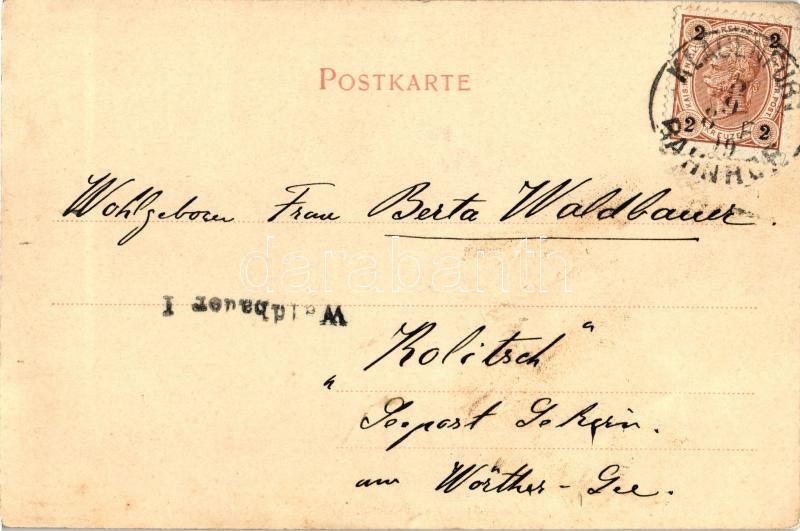 POSTKARTE
2 2
2 KREUZER 2
KLAGENFURT
BAHNHOF
Wohlgeboren Frau Berta Waldbauer.
darabanth
Waldbauer I
„Kolitsch“
Seepost Sekirn.
am Wörther-See.